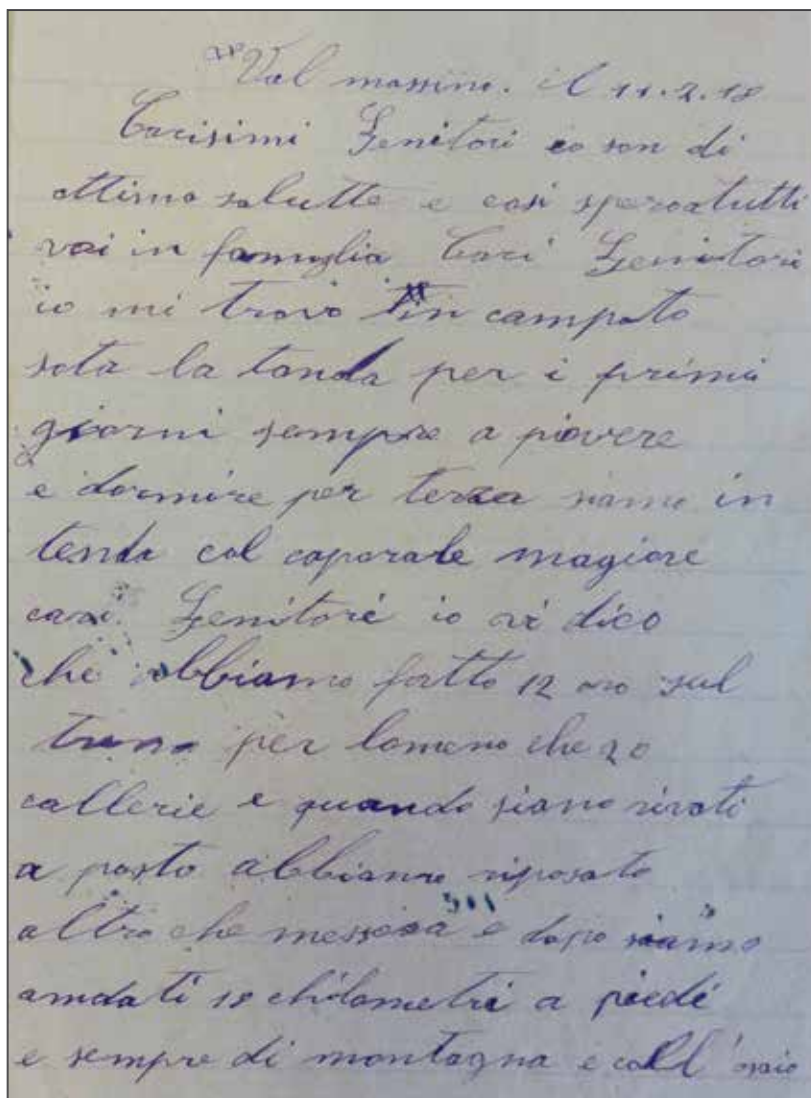 Val massino. il 11.2.18
Carisimi Genitori io son di
ottimo salutte e cosi speroatutti
voi in famiglia Cari Genitori
io mi trovo in campato
sota la tanda per i primi
giorni sempre a piovere
e dormire per terra siamo in
tenda col caporale magiore
cari Genitori io vi dico
che abbiamo fatto 12 oro sul
treno per lomeno che 20
callerie e quando siamo rivati
a posto abbiamo riposato
altro che mess'ora e dopo siamo
andati 18 chilometri a piedi
e sempre di montagna e coll